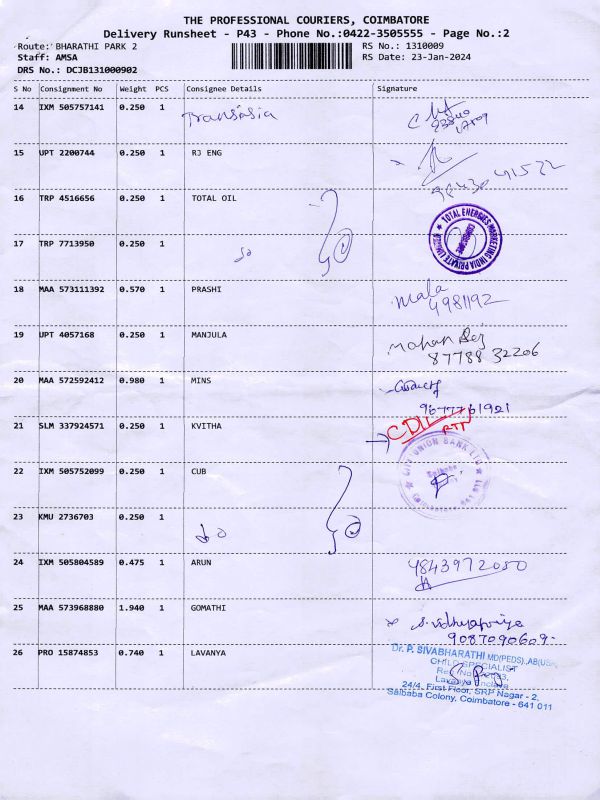 THE PROFESSIONAL COURIERS, COIMBATORE
Delivery Runsheet - P43 - Phone No.:0422-3505555 - Page No.:2
Route: BHARATHI PARK 2 RS No.: 1310009
Staff: AMSA RS Date: 23-Jan-2024
DRS No.: DCJB131000902
S No Consignment No Weight PCS Consignee Details Signature
14 IXM 505757141 0.250 1 Transasia
15 UPT 2200744 0.250 1 RJ ENG
98430 41522
16 TRP 4516656 0.250 1 TOTAL OIL
TOTAL ENERGIES MARKETING INDIA PRIVATE LIMITED
COIMBATORE
17 TRP 7713950 0.250 1 do
18 MAA 573111392 0.570 1 PRASHI Mala
4981192
19 UPT 4057168 0.250 1 MANJULA Mohan Raj
87788 32206
20 MAA 572592412 0.980 1 MINS
9677761921
21 SLM 337924571 0.250 1 KVITHA CDLL
RTP
22 IXM 505752099 0.250 1 CUB
CITY UNION BANK LTD
Saibaba
Coimbatore 641 011
23 KMU 2736703 0.250 1 do
24 IXM 505804589 0.475 1 ARUN 9843972050
25 MAA 573968880 1.940 1 GOMATHI S. Vidhyapriya
9087090609
26 PRO 15874853 0.740 1 LAVANYA
Dr. P. SIVABHARATHI MD(PEDS).,AB(USA)
CHILD SPECIALIST
Lavanya Enclave
24/4, First Floor, SRP Nagar - 2,
Saibaba Colony, Coimbatore - 641 011